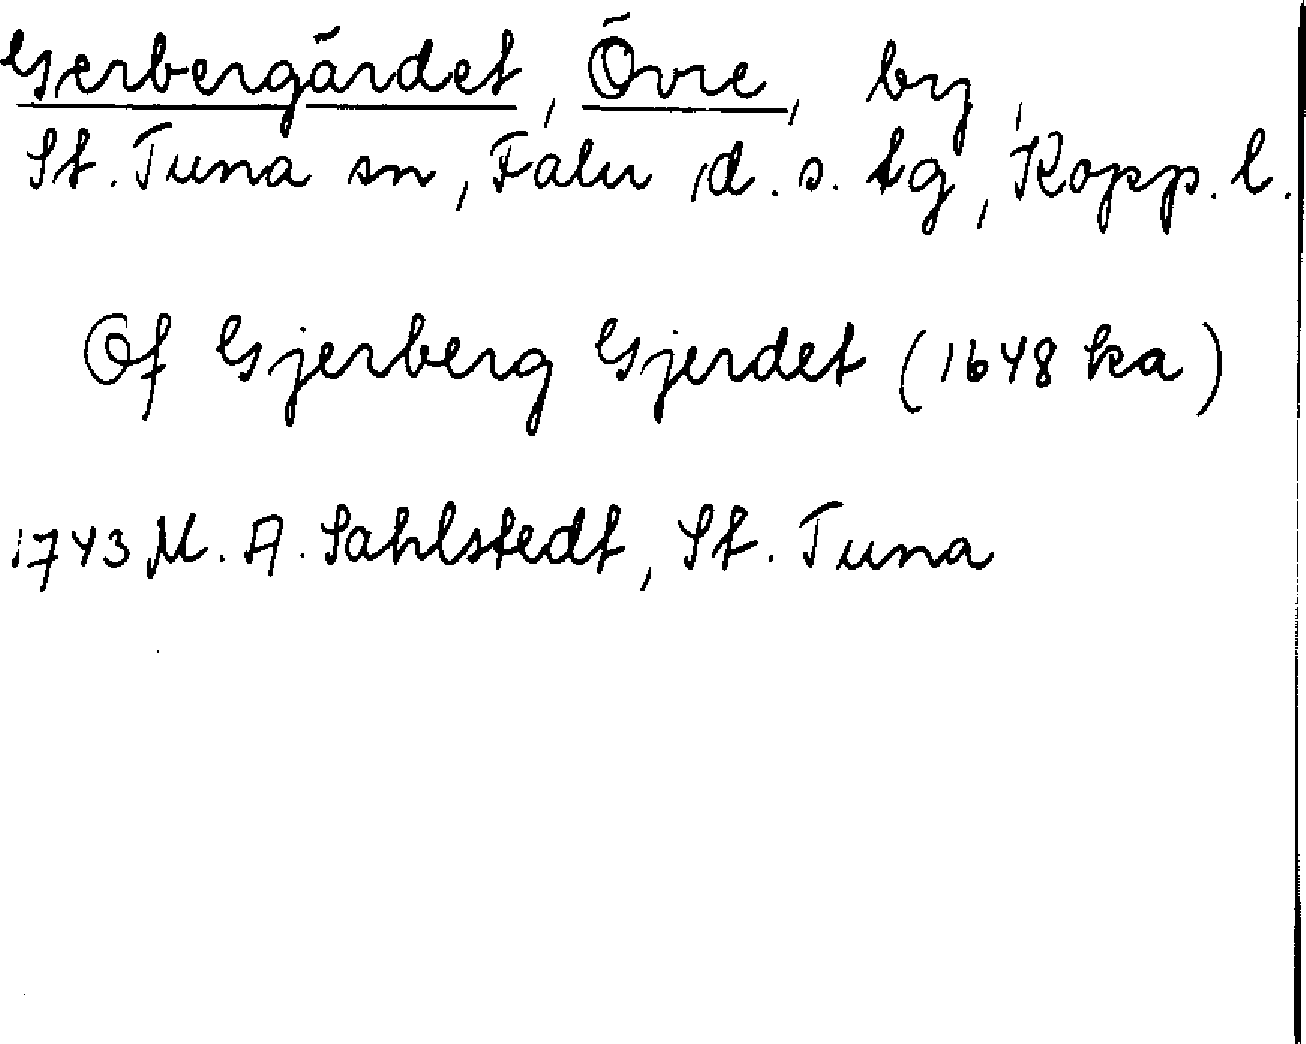 Gerbergärdet, Övre, by,
St. Tuna sn, Falu d. s. tg, Kopp. l.
Of Gjerberg Gjerdet (1648 ka)
1743 M. A. Sahlstedt, St. Tuna